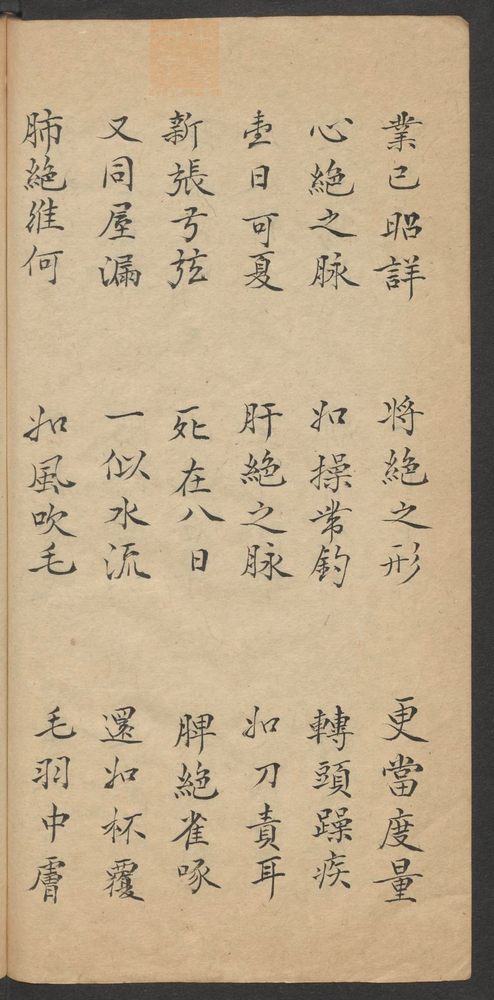 業已昭詳　将絶之形　更當度量
心絶之脉　如操帯鈎　轉頭躁疾
壹日可夏　肝絶之脉　如刀責耳
新張弓弦　死在八日　脾絶雀啄
又同屋漏　一似水流　還如杯覆
肺絶维何　如風吹毛　毛羽中膚